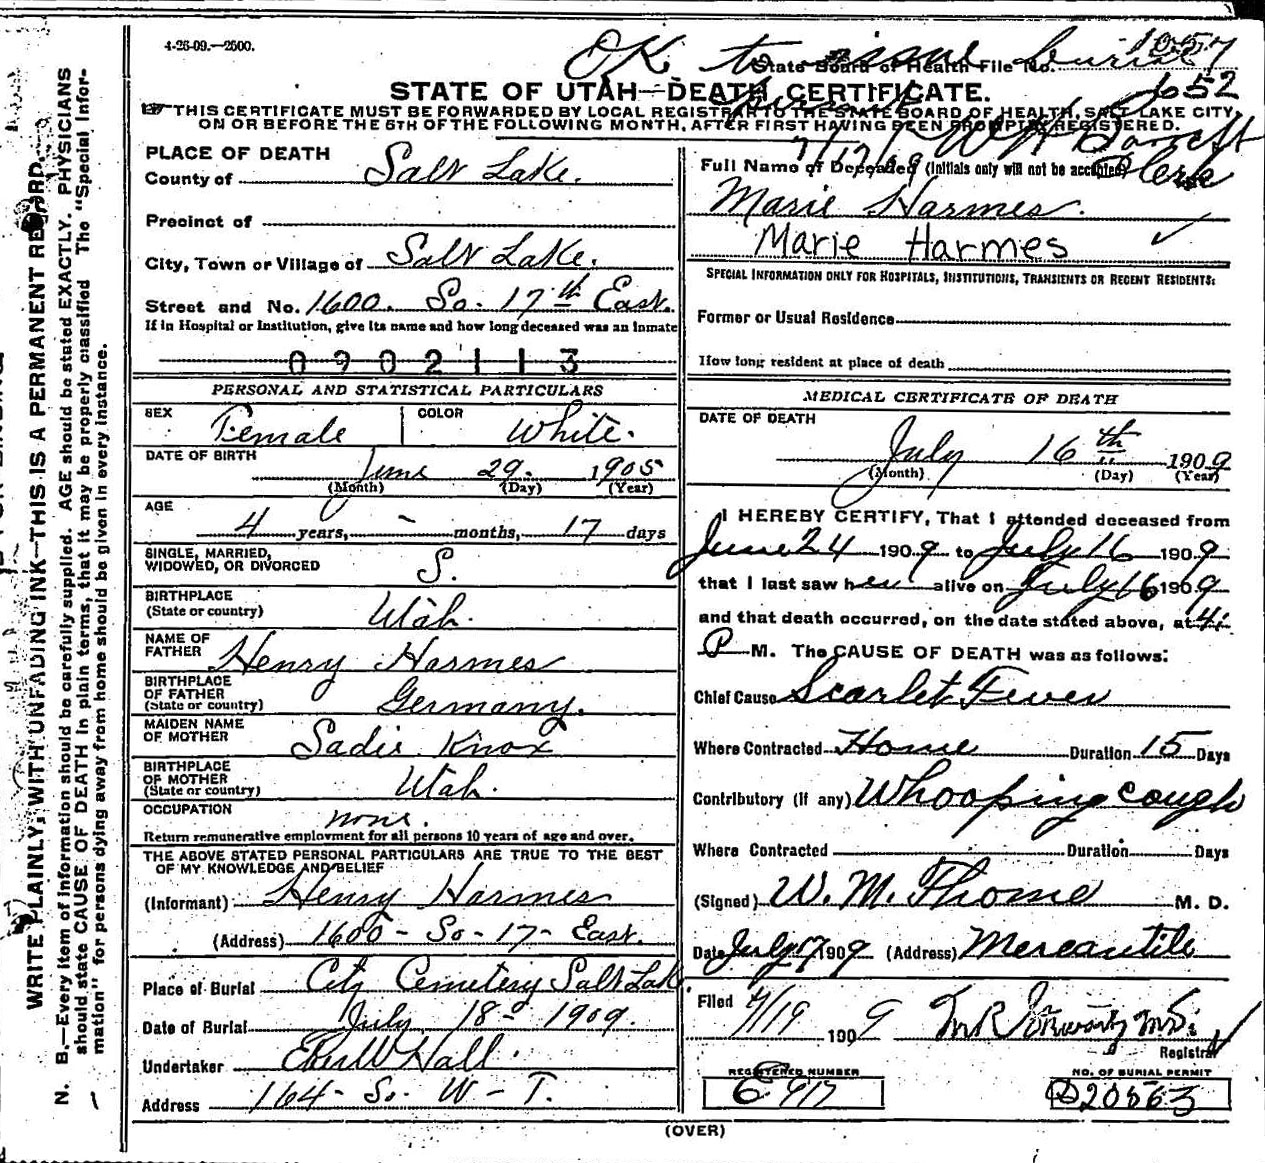 4-26-09.—2500.
OK to issue burial
1057
State Board of Health File No.
652
STATE OF UTAH—DEATH CERTIFICATE.
THIS CERTIFICATE MUST BE FORWARDED BY LOCAL REGISTRAR TO THE STATE BOARD OF HEALTH, SALT LAKE CITY,
ON OR BEFORE THE 5TH OF THE FOLLOWING MONTH, AFTER FIRST HAVING BEEN PROMPTLY REGISTERED.
7/17/09
Clerk
WRITE PLAINLY, WITH UNFADING INK—THIS IS A PERMANENT RECORD.
N. B.—Every item of information should be carefully supplied. AGE should be stated EXACTLY. PHYSICIANS
should state CAUSE OF DEATH in plain terms, that it may be properly classified The "Special Infor-
mation" for persons dying away from home should be given in every instance.
PLACE OF DEATH
County of Salt Lake.
Precinct of
City, Town or Village of Salt Lake.
Street and No. 1600. So. 17th East.
If in Hospital or Institution, give its name and how long deceased was an inmate
0902113
PERSONAL AND STATISTICAL PARTICULARS
SEX Female COLOR White.
DATE OF BIRTH June 29. 1905
(Month) (Day) (Year)
AGE
4 years, - months, 17 days
SINGLE, MARRIED,
WIDOWED, OR DIVORCED S.
BIRTHPLACE
(State or country) Utah.
NAME OF
FATHER Henry Harmes
BIRTHPLACE
OF FATHER
(State or country) Germany.
MAIDEN NAME
OF MOTHER Sadie Knox
BIRTHPLACE
OF MOTHER
(State or country) Utah.
OCCUPATION none.
Return remunerative employment for all persons 10 years of age and over.
THE ABOVE STATED PERSONAL PARTICULARS ARE TRUE TO THE BEST
OF MY KNOWLEDGE AND BELIEF
(Informant) Henry Harmes
(Address) 1600 - So - 17 - East.
Place of Burial City Cemetery Salt Lake.
Date of Burial July 18 - 1909.
Undertaker Eber W Hall.
Address 164 - So. W - T.
Full Name of Deceased (Initials only will not be accepted)
Marie Harmes.
Marie Harmes
SPECIAL INFORMATION ONLY FOR HOSPITALS, INSTITUTIONS, TRANSIENTS OR RECENT RESIDENTS:
Former or Usual Residence
How long resident at place of death
MEDICAL CERTIFICATE OF DEATH
DATE OF DEATH
July 16th 1909
(Month) (Day) (Year)
I HEREBY CERTIFY, That I attended deceased from
June 24 1909 to July 16 1909
that I last saw her alive on July 16 1909
and that death occurred, on the date stated above, at 4:
P M. The CAUSE OF DEATH was as follows:
Chief Cause Scarlet Fever
Where Contracted Home Duration 15 Days
Contributory (if any) Whooping cough
Where Contracted Duration Days
(Signed) W. M. Thome M. D.
Date July 17 1909 (Address) Mercantile
Filed 7/19 1909
Registrar
REGISTERED NUMBER
E 917
NO. OF BURIAL PERMIT
D20563
(OVER)